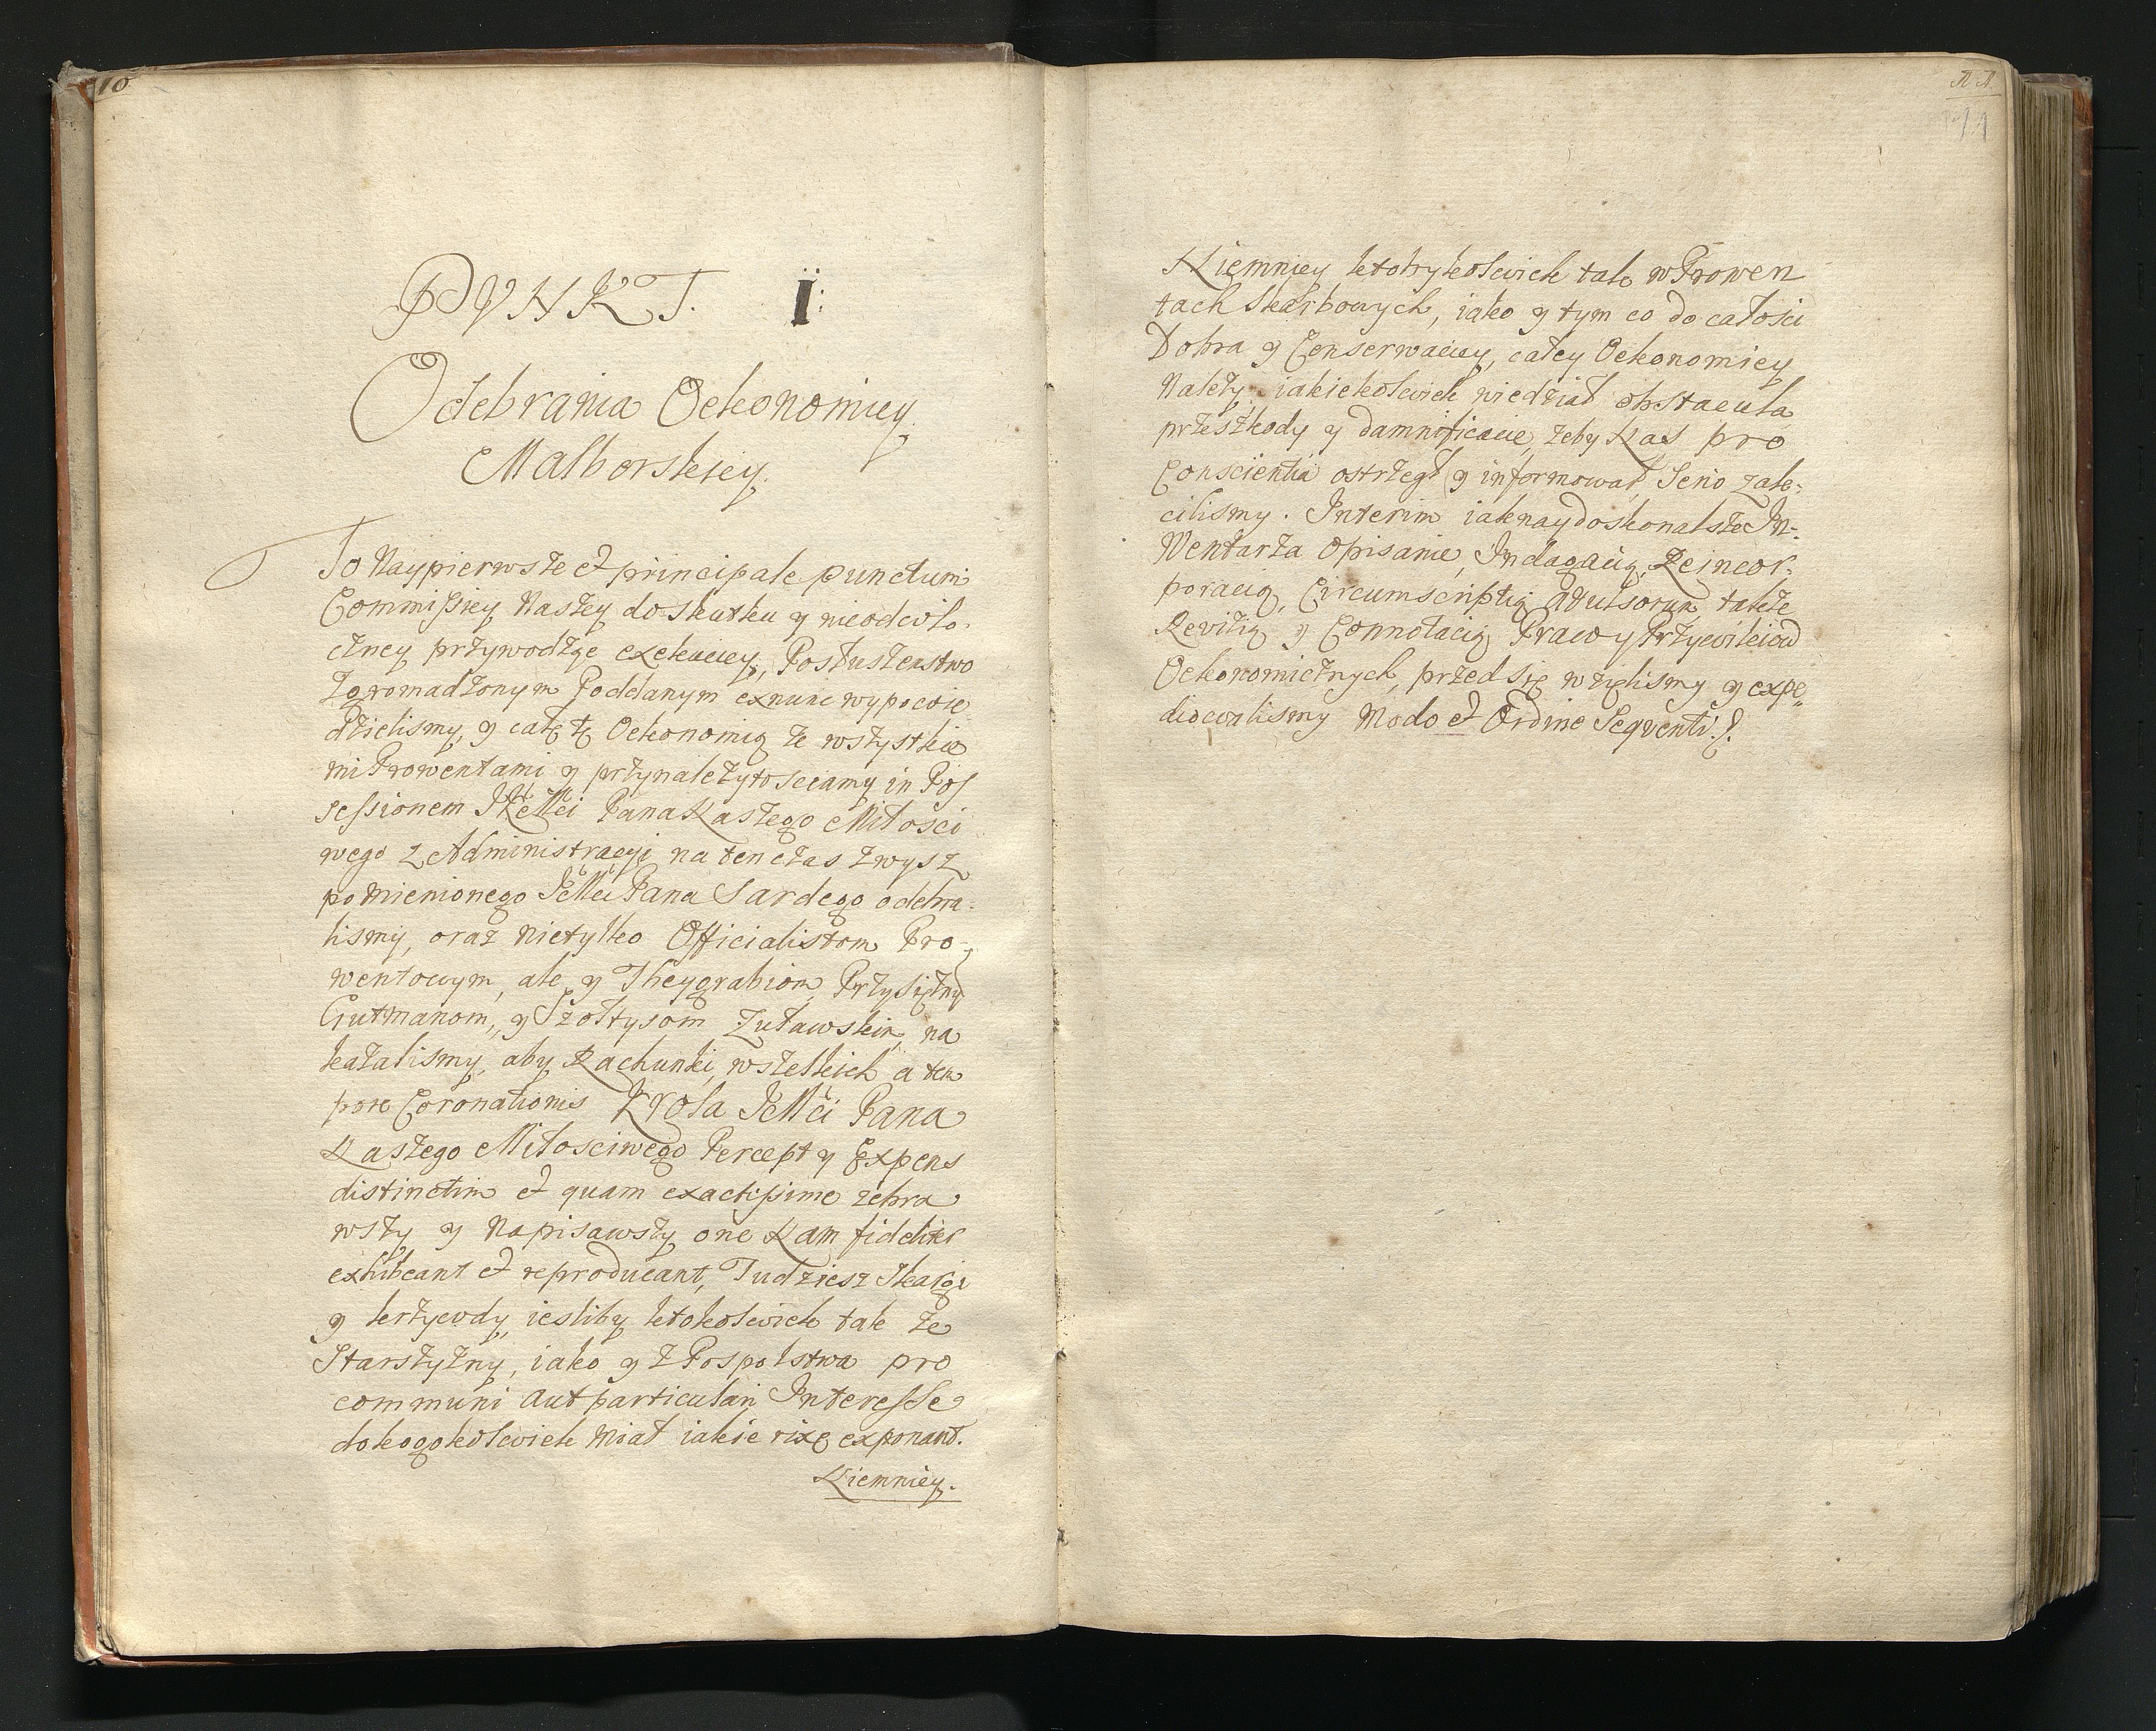 10
PUNKT. I:
Odebrania Oekonomiey
Malborskiey.
To Naypierwsze et principale punctum
Commissiey Naszey do skutku y nieodwło-
czney przywodząc exekuciey, Posłuszenstwo
Zgromadzonym Poddanym exnunc wypowie
dzielismy, y całę tę Oekonomią ze wszystkie
mi Prowentami y przynależytosciamy in Pos
sessionem JKrMci Pana Naszego Miłości
wego z Administracyi na ten czas zwysz
pomienionego JeMci Pana Sardego odebra-
lismy, oraz nietylko Officialistom Pro-
wentowym, ale y Theygrabiom, Przysiężny
Gutmanom, y Szołtysom Zuławskim, na
kazalismy, aby Rachunki, wszelkich a tem
pore Coronationis Krola JeMci Pana
Naszego Miłosciwego Percept y Expens
distinctim et quam exactissime zebra
wszy y Napisawszy one Nam fideliter
exhibeant et reproducant, Tudziesz Skargi
y krzywdy, iesliby ktokolwiek tak ze
Starszyzny, iako y z Pospolstwa pro
communi aut particulari Interesse
dokogokolwiek Miał iakie rixę exponant.
Niemniey.
11
11
Niemniey ktorykolwiek tak w Prowen
tach Skarbowych, iako y tym co do całosci
Dobra y Conserwaciey, całey Oekonomiey
Należy iakiekolwiek wiedział obstacula
przeszkody y damnificacie, żeby Nas pro
Conscientia ostrzegł y informował, Serio zale-
cilismy. Interim iaknaydoskonalsze In-
Wentarza opisanie, Indagacią, Reincor-
poracią, Circumscriptią avulsorum takze
Rewizią y Connotacią Praw y Przywileiow
Oekonomicznych, przed się wzięlismy y expe-
diowalismy Modo et Ordine Sequenti.